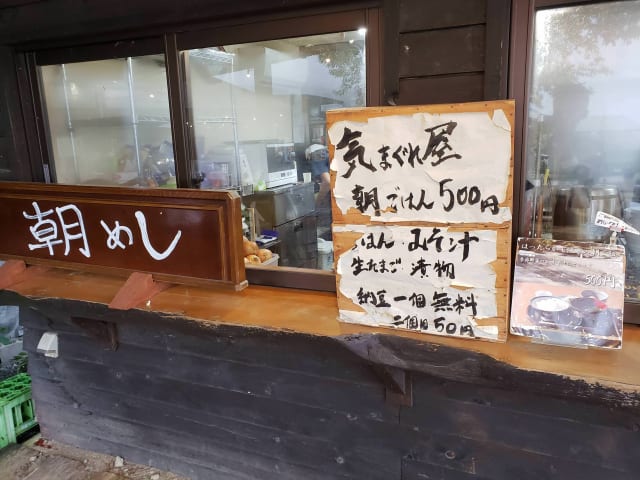 朝めし
気まぐれ屋
朝ごはん500円
ごはん みそ汁
生たまご 漬物
納豆一個無料
二個目50円
500円